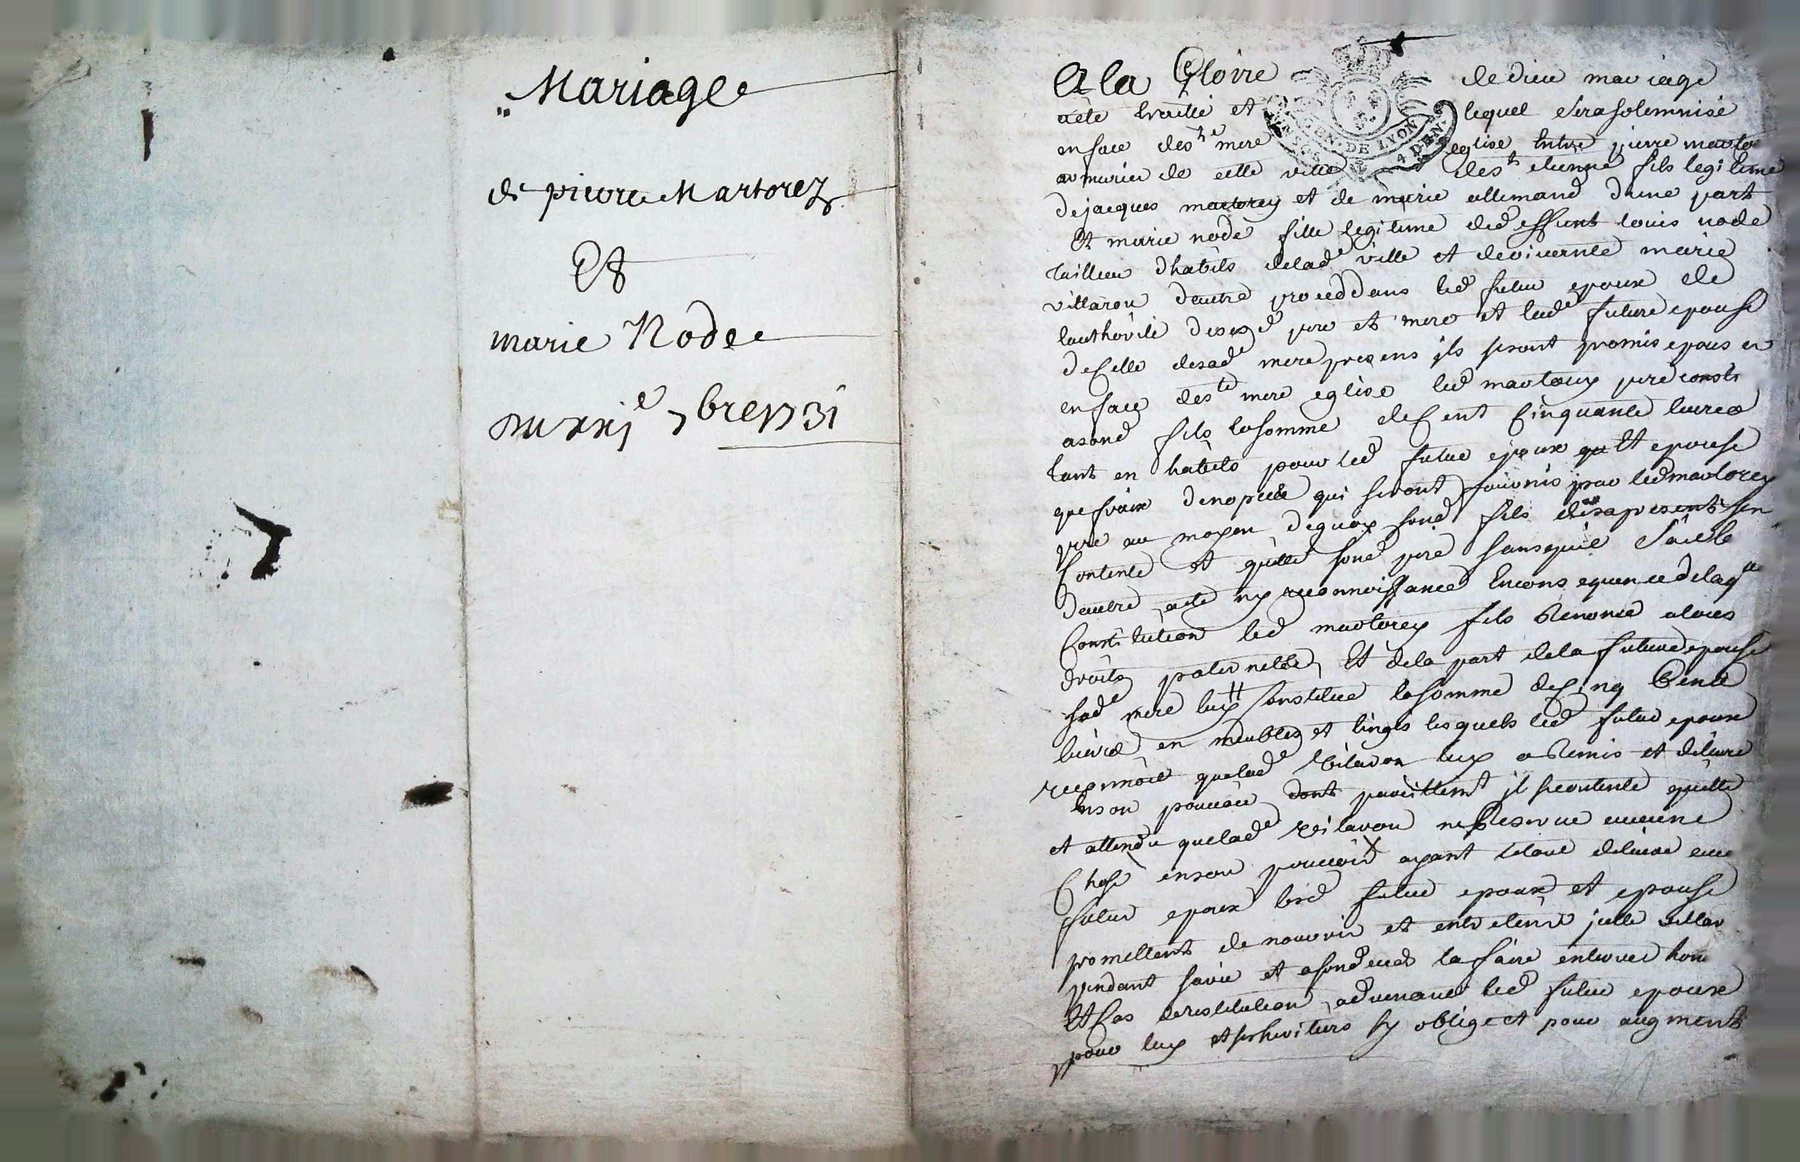 Mariage
de pierre Martorez
Et
marie Node
Du xxi^e 7bre 1731
A la Gloire de dieu mariage
a été traitté et lequel sera solemnisé
en face de s^te mere eglise Entre pierre martorey
armurier de cette ville de s^t etienne fils legitime
de jacques martorey et de marie allemand d'une part
Et marie node fille legitime de deffunt louis node
tailleur d'habits de lad^e ville et de vivente marie
villaron d'autre proceddans led futur epoux de
l'authorité de sesd pere et mere et lad^e future epouse
de celle de sad^e mere presens ils se sont promis epous er
en face de s^te mere eglise led martorey pere consti
a sond fils la somme de Cent Cinquante livres
tant en habits pour led futur epoux que Et epouse
que fraix de nopces qui seront fournis par led martorey
pere au moyen de quoy sond fils desapresent sen
Contente et quitte sond pere sans quil soit be
d'autre acte ny reconnoissance En consequence de laq^lle
Constitution led martorey fils Renonce a tous
droits paternels, Et de la part de la future epouse
sad^e mere luy Constitue la somme de Cinq Cents
livres en meubles et linges lesquels led futur epoux
reconnoit que lad^e vilaron luy a Remis et delivré
en son pouvoir dont partant il se contente quitte
et attendu que lad^e vilaron ne Reserve aucune
Chose en son pouvoir ayant le tout delivré aux
futur epoux lesd futur epoux et epouse
promettent de nourrir et entretenir jcelle villar
pendant sa vie et a son deces la faire enterrer hon
Et Cas de restitution advenant led futur epoux
pour luy et ses heritiers sy oblige et pour augment
GEN. DE LYON
4 DEN.